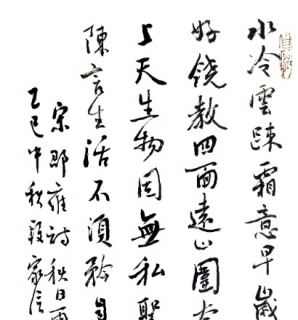 水冷雲踈霜意早歲
好饒教四面遠山圍
上天生物固無私聖
陳言生活不須矜自
宋邵雍詩秋日雨
乙巳中秋段家